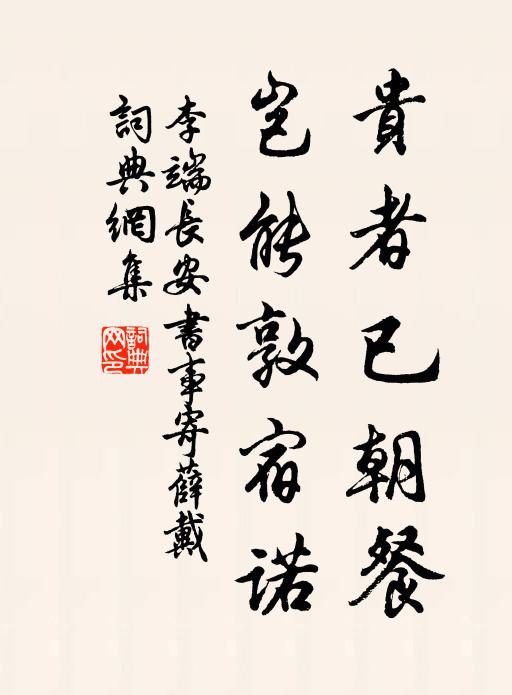 貴者已朝餐
豈能敦宿諾
李端長安書事寄薛戴
詞典網集
詞典网印